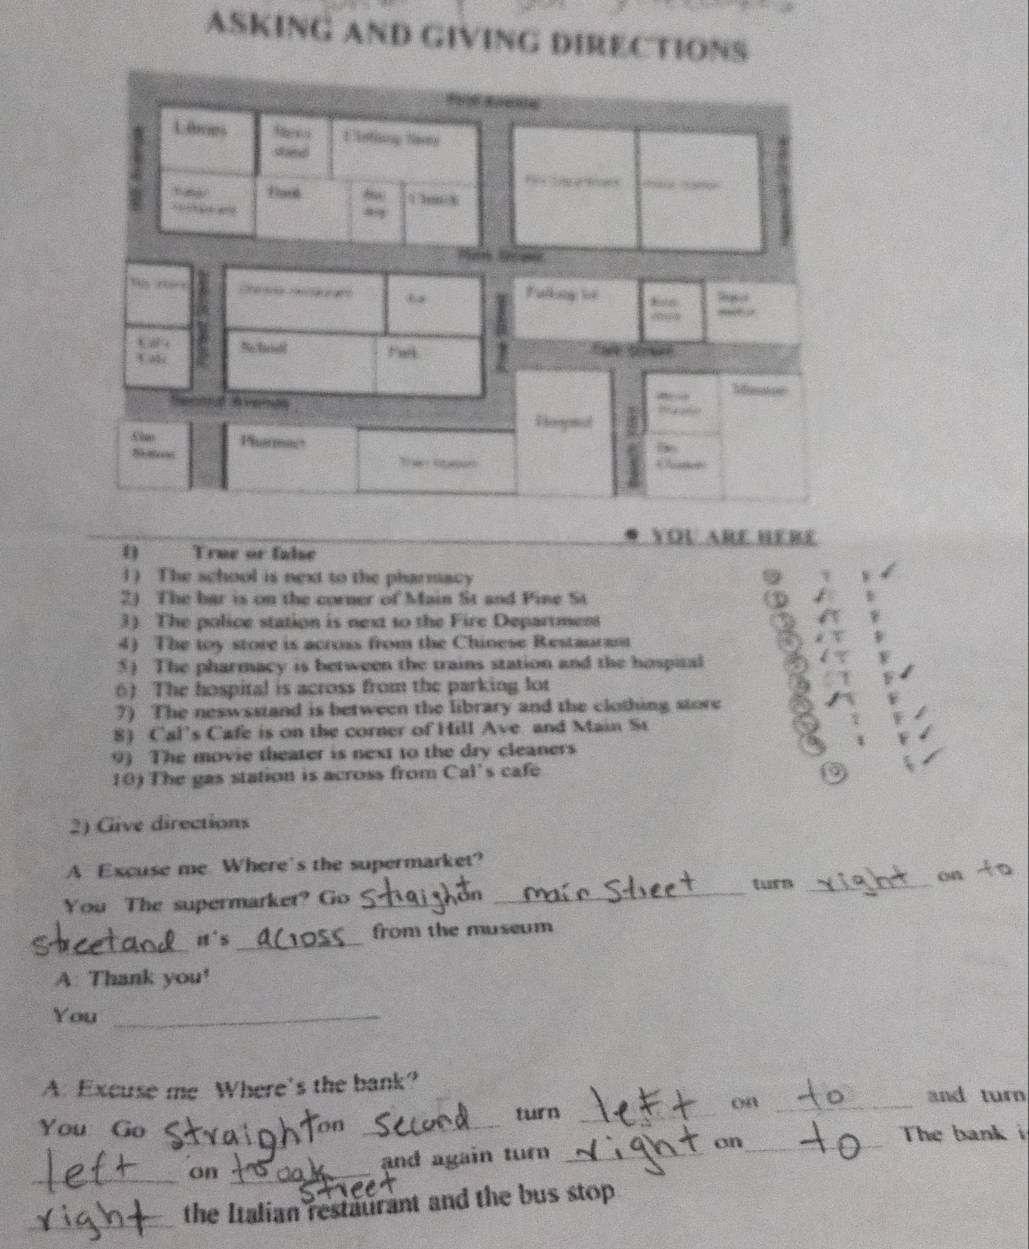 ASKING AND GIVING DIRECTIONS
First Avenue
Clothing Store
stand
Bank
Church
Main Street
Chinese restaurant
Bar
Parking lot
Cal's
Cafe
School
Park
Second Avenue
Hospital
Museum
Gas
Station
Pharmacy
Train Station
YOU ARE HERE
1) True or false
1) The school is next to the pharmacy
2) The bar is on the corner of Main St and Pine St
3) The police station is next to the Fire Department
4) The toy store is across from the Chinese Restaurant
5) The pharmacy is between the trains station and the hospital
6) The hospital is across from the parking lot
7) The neswsstand is between the library and the clothing store
8) Cal's Cafe is on the corner of Hill Ave and Main St
9) The movie theater is next to the dry cleaners
10) The gas station is across from Cal's cafe
2) Give directions
A Excuse me Where's the supermarket?
You The supermarket? Go straight on main Street turn right on to
street and it's across from the museum
A: Thank you!
You
A. Excuse me Where's the bank?
You Go Straight on Second turn left on to and turn
left on to oak street and again turn right on to The bank i
right the Italian restaurant and the bus stop